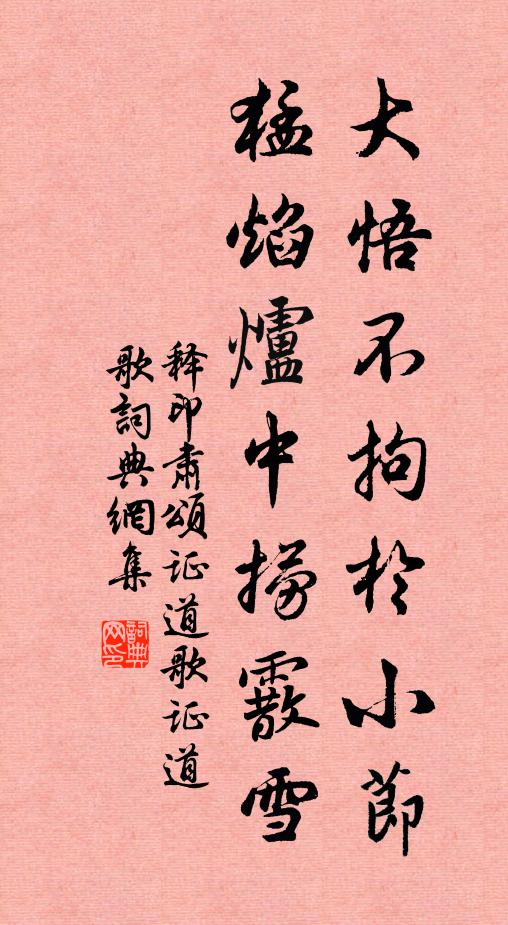 大悟不拘於小節
猛焰爐中撈霰雪
释印肅頌证道歌证道
歌詞典網集
詞典网印